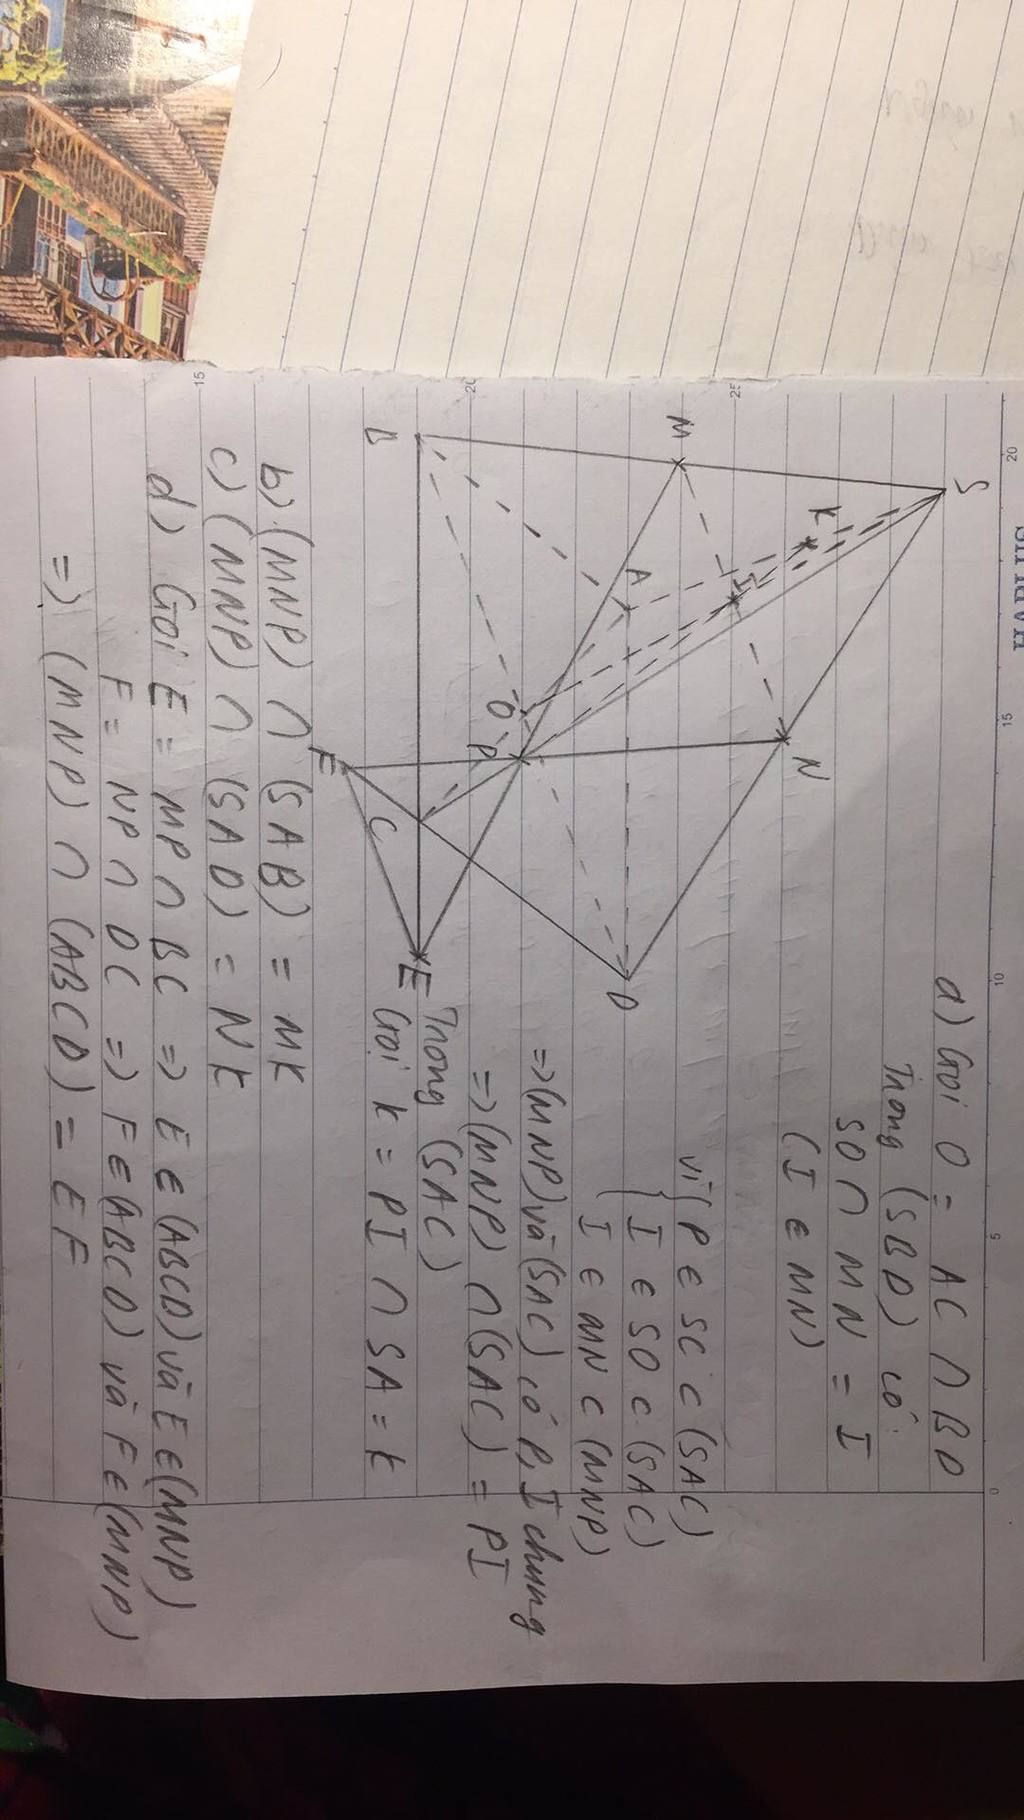 HAPLUS
20
15
10
5
0
a) Gọi O = AC ∩ BD
Trong (SBD) có
SO ∩ MN = I
(I ∈ MN)
Vì { P ∈ SC ⊂ (SAC)
I ∈ SO ⊂ (SAC)
I ∈ MN ⊂ (MNP)
=> (MNP) và (SAC) có P, I chung
=> (MNP) ∩ (SAC) = PI
Trong (SAC)
Gọi K = PI ∩ SA = K
S
M
K
N
I
A
B
O
P
D
C
F
E
b) (MNP) ∩ (SAB) = MK
c) (MNP) ∩ (SAD) = NK
d) Gọi E = MP ∩ BC => E ∈ (ABCD) và E ∈ (MNP)
F = NP ∩ DC => F ∈ (ABCD) và F ∈ (MNP)
=> (MNP) ∩ (ABCD) = EF
25
20
15